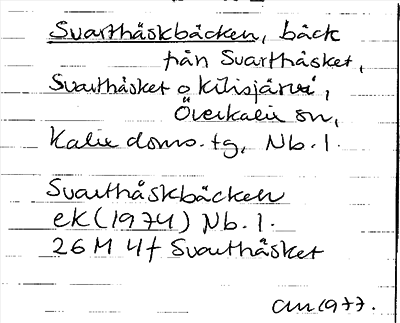 Svarthåskbäcken, bäck
från Svarthåsket,
Svarthåsket o Kilisjärvi,
Överkalix sn,
Kalix doms. tg, Nb. l.
Svarthåskbäcken
ek (1974) Nb. l.
26 M 4f Svarthåsket
1977.